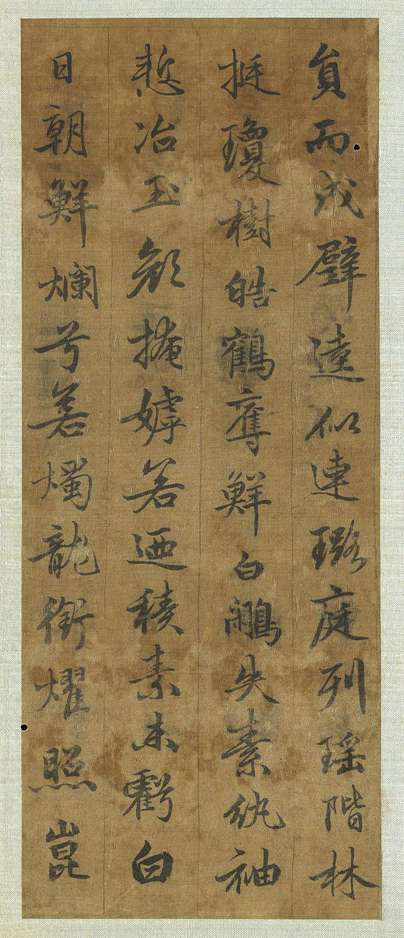 員而成璧逵似連璐庭列瑤階林
挺瓊樹皓鶴奪鮮白鷴失素紈袖
慙冶玉顏掩嫮若迺積素未虧白
日朝鮮爛兮若燭龍銜燿照崑